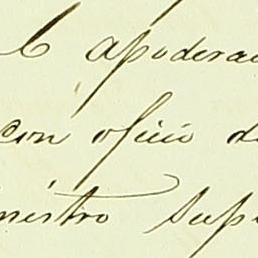 apodera
con oficio d
nistro Sup